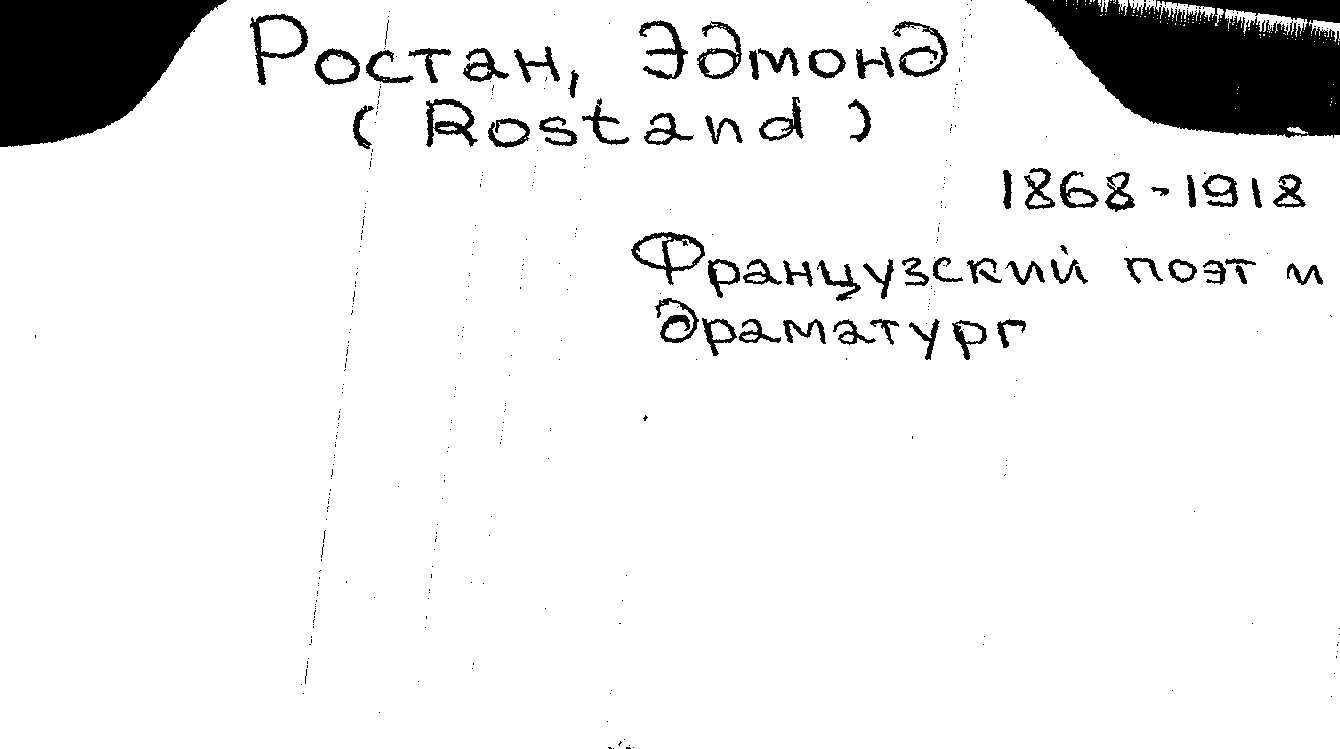 Ростан, Эдмонд
( Rostand )
1868-1918
Французский поэт и
драматург